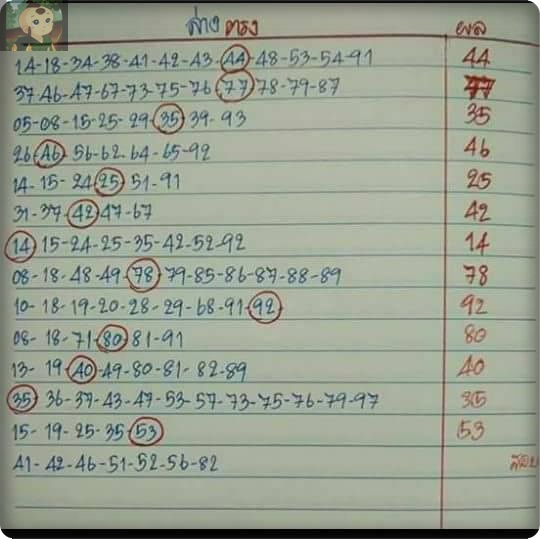 ล่าง ตรง ผล
14-18-34-38-41-42-43-44-48-53-54-91 44
37-46-47-67-73-75-76-77-78-79-87 77
05-08-15-25-29-35-39-93 35
26-46-56-62-64-65-92 46
14-15-24-25-51-91 25
31-37-42-47-67 42
14-15-24-25-35-42-52-92 14
08-18-48-49-78-79-85-86-87-88-89 78
10-18-19-20-28-29-68-91-92 92
08-18-71-80-81-91 80
13-19-40-49-80-81-82-89 40
35-36-37-43-47-53-57-73-75-76-79-97 35
15-19-25-35-53 53
41-42-46-51-52-56-82